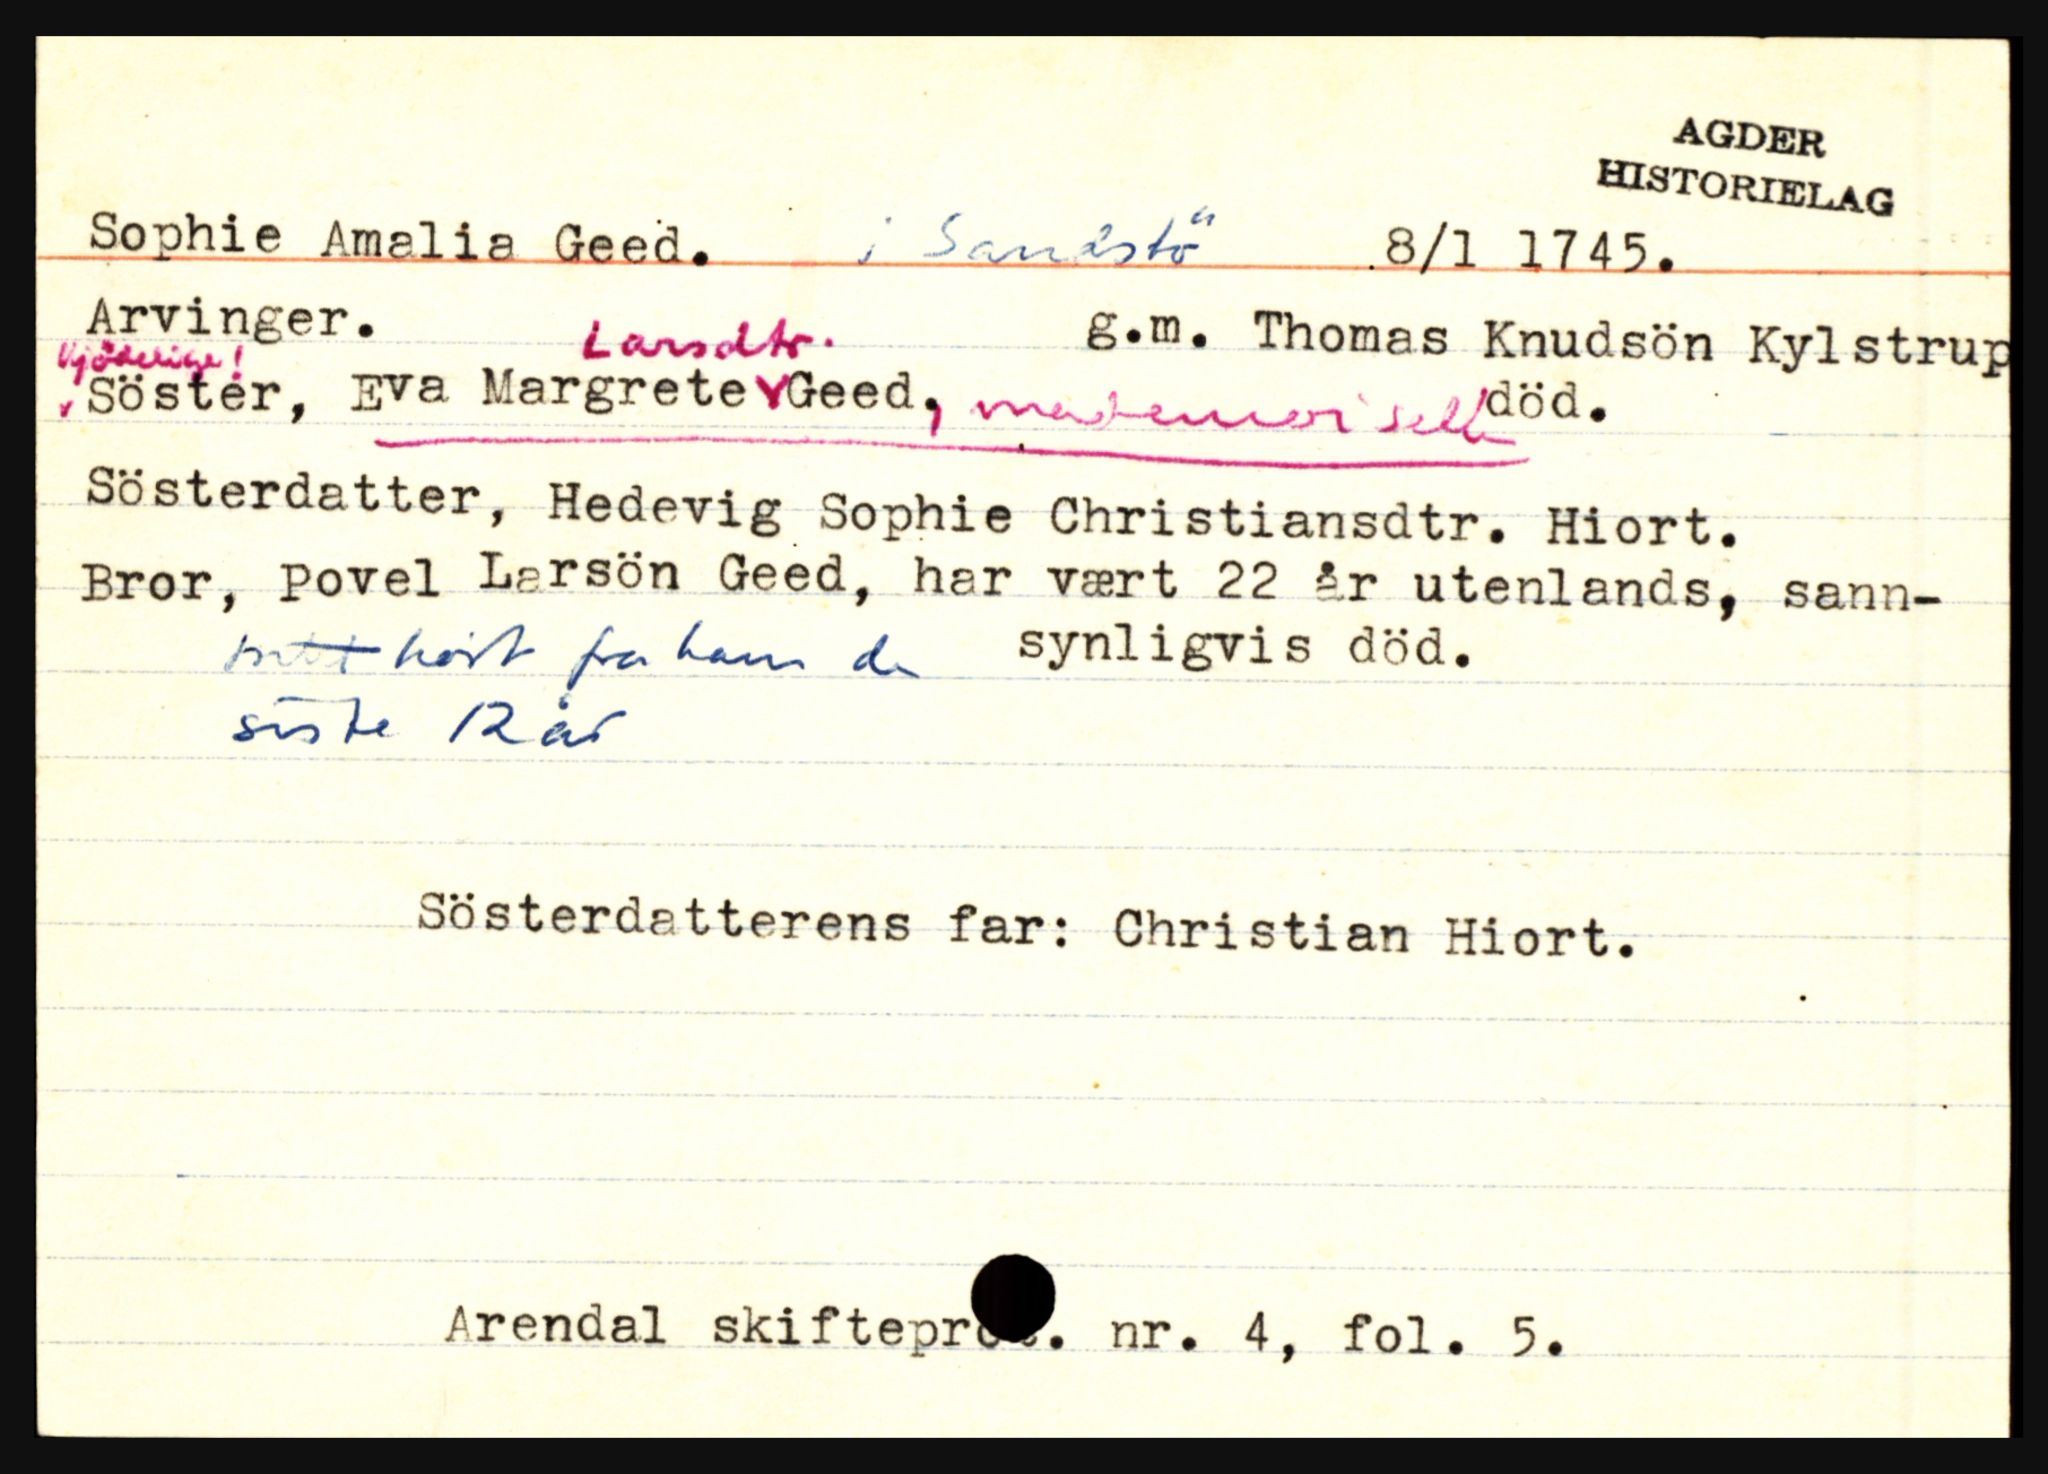 AGDER
HISTORIELAG
Sophie Amalia Geed. i Sandstö 8/1 1745.
Arvinger. g.m. Thomas Knudsön Kylstrup
Kjödelige! Larsdtr.
Söster, Eva Margrete Geed, mademoiselle död.
Sösterdatter, Hedevig Sophie Christiansdtr. Hiort.
Bror, Povel Larsön Geed, har vært 22 år utenlands, sann-
hört fra ham de synligvis död.
siste 12 år
Sösterdatterens far: Christian Hiort.
Arendal skifteprot. nr. 4, fol. 5.